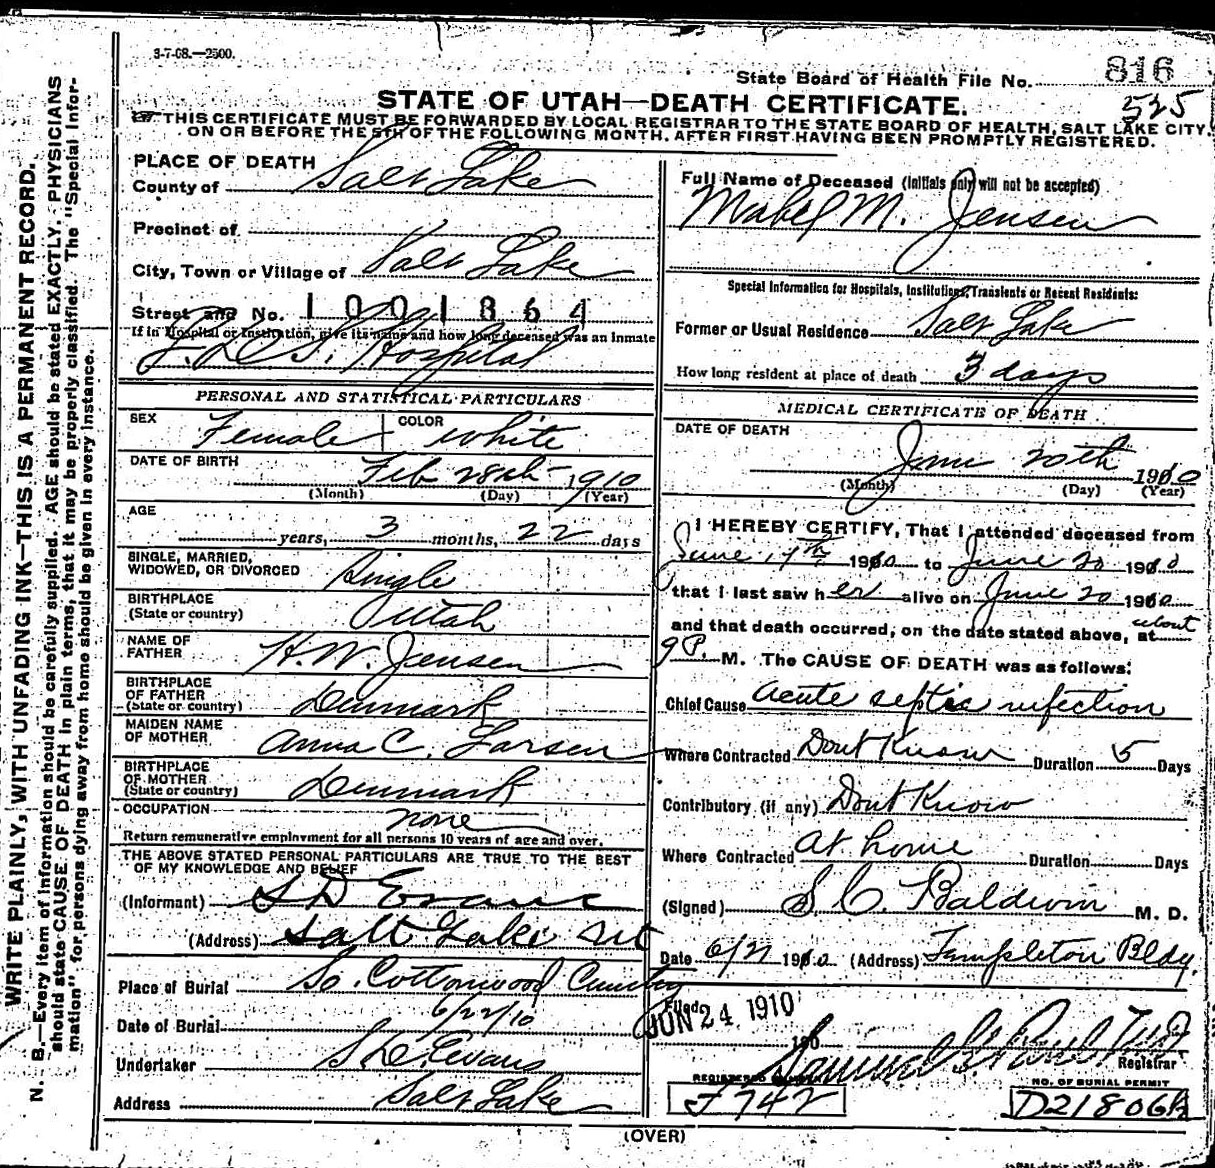 3-7-08.—2500.
State Board of Health File No. 816
525
STATE OF UTAH—DEATH CERTIFICATE.
THIS CERTIFICATE MUST BE FORWARDED BY LOCAL REGISTRAR TO THE STATE BOARD OF HEALTH, SALT LAKE CITY,
ON OR BEFORE THE 5th OF THE FOLLOWING MONTH, AFTER FIRST HAVING BEEN PROMPTLY REGISTERED.
WRITE PLAINLY, WITH UNFADING INK—THIS IS A PERMANENT RECORD.
N. B.—Every item of information should be carefully supplied. AGE should be stated EXACTLY. PHYSICIANS
should state CAUSE OF DEATH in plain terms, that it may be properly classified. The "Special Infor-
mation" for persons dying away from home should be given in every instance.
PLACE OF DEATH
County of Salt Lake
Precinct of
City, Town or Village of Salt Lake
Street and No. 1001864
If in Hospital or Institution, give its name and how long deceased was an inmate
L.D.S. Hospital
PERSONAL AND STATISTICAL PARTICULARS
SEX Female COLOR white
DATE OF BIRTH Feb 28th 1910
(Month) (Day) (Year)
AGE
years, 3 months, 22 days
SINGLE, MARRIED,
WIDOWED, OR DIVORCED Single
BIRTHPLACE
(State or country) Utah
NAME OF
FATHER H. W. Jensen
BIRTHPLACE
OF FATHER
(State or country) Denmark
MAIDEN NAME
OF MOTHER Anna C. Larsen
BIRTHPLACE
OF MOTHER
(State or country) Denmark
OCCUPATION none
Return remunerative employment for all persons 10 years of age and over.
THE ABOVE STATED PERSONAL PARTICULARS ARE TRUE TO THE BEST
OF MY KNOWLEDGE AND BELIEF
(Informant) S D Evans
(Address) Salt Lake Ut
Place of Burial So. Cottonwood Cemetry
Date of Burial 6/22/10
Undertaker S. D. Evans
Address Salt Lake
Full Name of Deceased (Initials only will not be accepted)
Mabel M. Jensen
Special Information for Hospitals, Institutions, Transients or Recent Residents:
Former or Usual Residence Salt Lake
How long resident at place of death 3 days
MEDICAL CERTIFICATE OF DEATH
DATE OF DEATH
June 20th 1910
(Month) (Day) (Year)
I HEREBY CERTIFY, That I attended deceased from
June 17th 1910 to June 20 1910
that I last saw her alive on June 20 1910
and that death occurred, on the date stated above, at about
9 P. M. The CAUSE OF DEATH was as follows:
Chief Cause acute septic infection
Where Contracted Dont Know Duration 5 Days
Contributory (if any) Dont Know
Where Contracted at home Duration Days
(Signed) S. C. Baldwin M. D.
Date 6/21 1910 (Address) Templeton Bldg.
Filed
JUN 24 1910
190
Samuel G. Paul
Registrar
REGISTERED
J 742
NO. OF BURIAL PERMIT
D21806
(OVER)